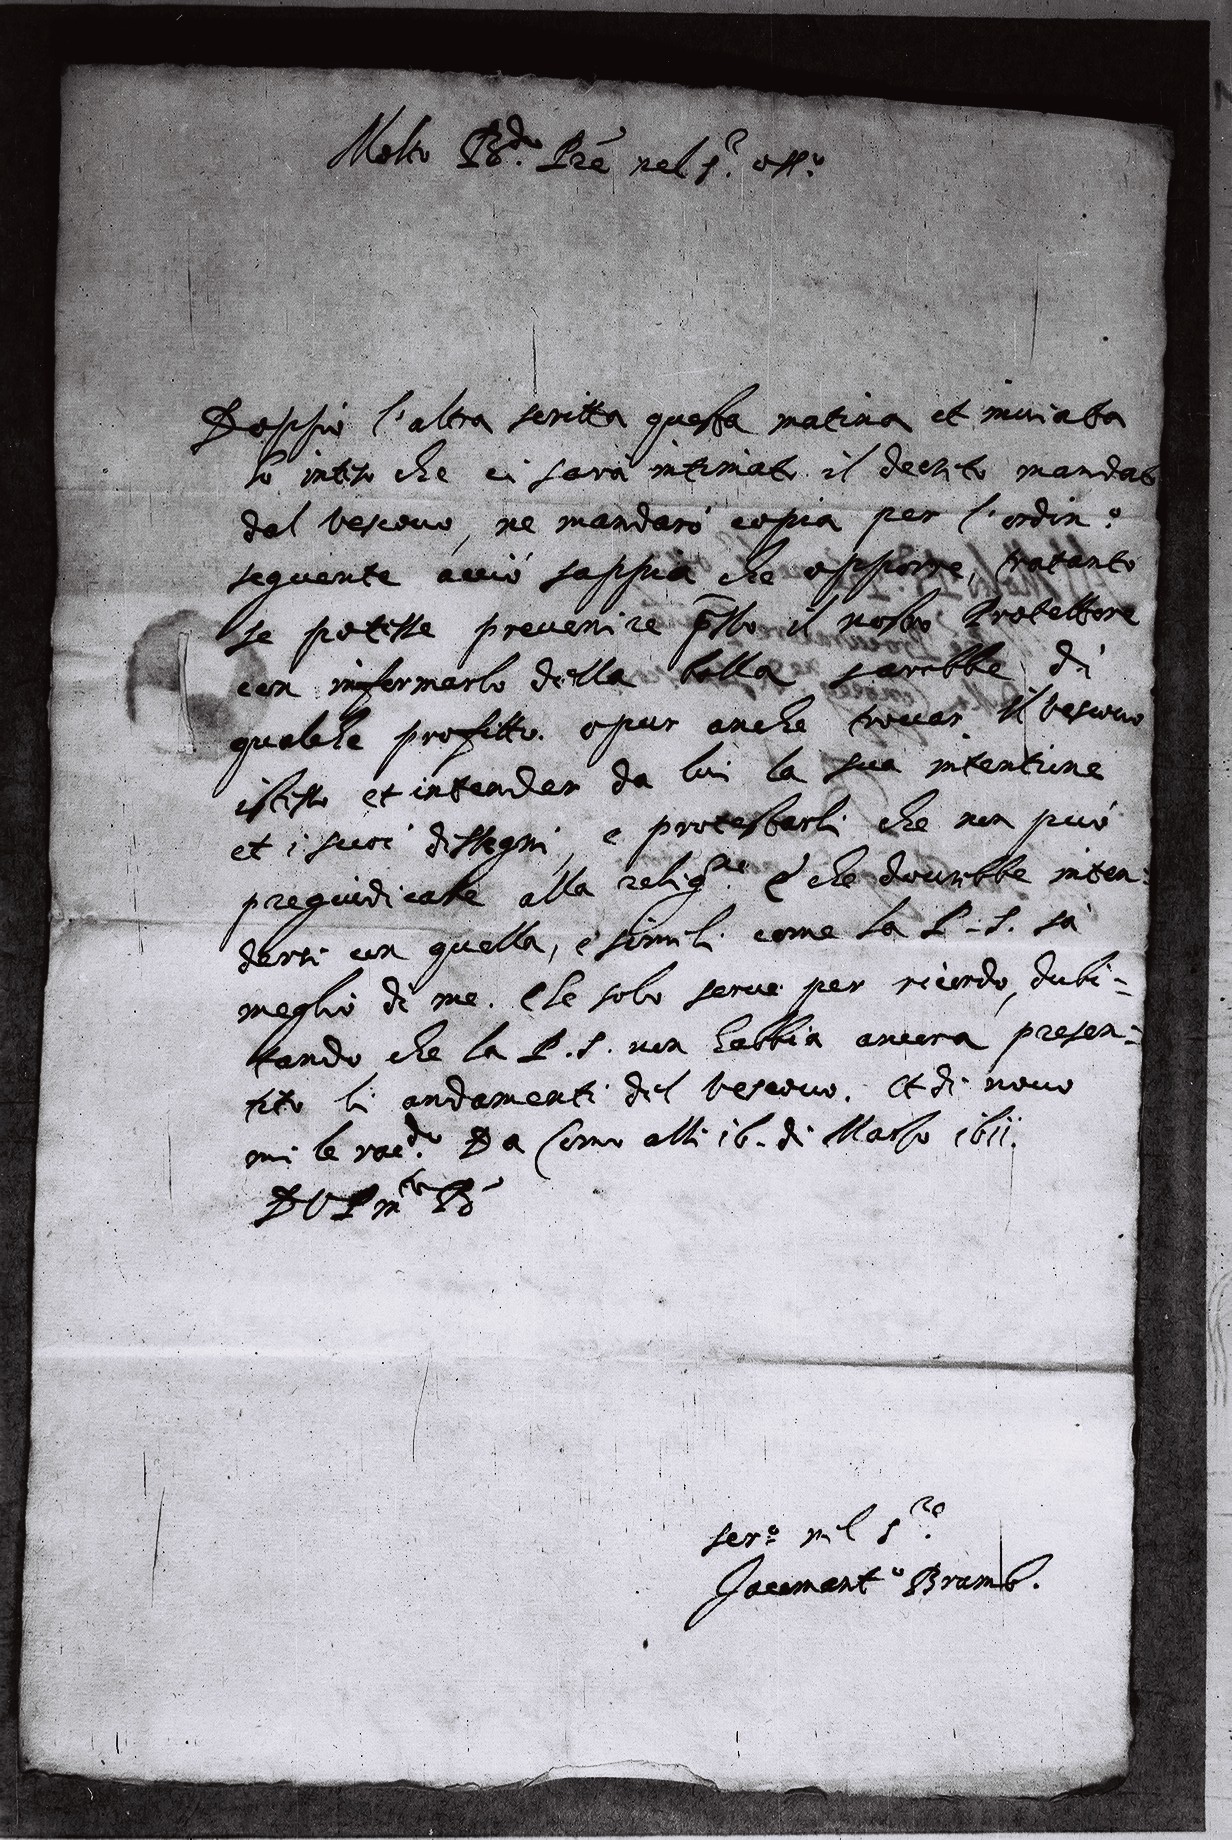 Molto R.do Pre nel s.r oss.o
Doppò l'altra scritta questa matina et inviata
hò inteso che ci sarà intimato il decreto mandato
dal vescovo, ne mandarò copia per l'ordin.o
seguente acciò sappia che opporre, tratanto
se potesse prevenire il nostro Protettore
con informarlo della bolla sarebbe di
qualche profitto. opur anche trovar il vescovo
istesso et intender da lui la sua intentione
et i suoi dissegni, e protestarli che non può
preguidicare alla relig.ne e che dovrebbe inten:
dersi con quella, e simili come la P. S. sà
meglio di me. Che solo serve per ricordo, dubi-
tando che la P. S. non habbia ancora presen-
tito li andamenti del vescovo. Et di novo
mi le rac.do Da Como alli 16. di Marzo 1611.
D V P m.to R.
ser.o nel s.re
Jacomant.o Bramb.